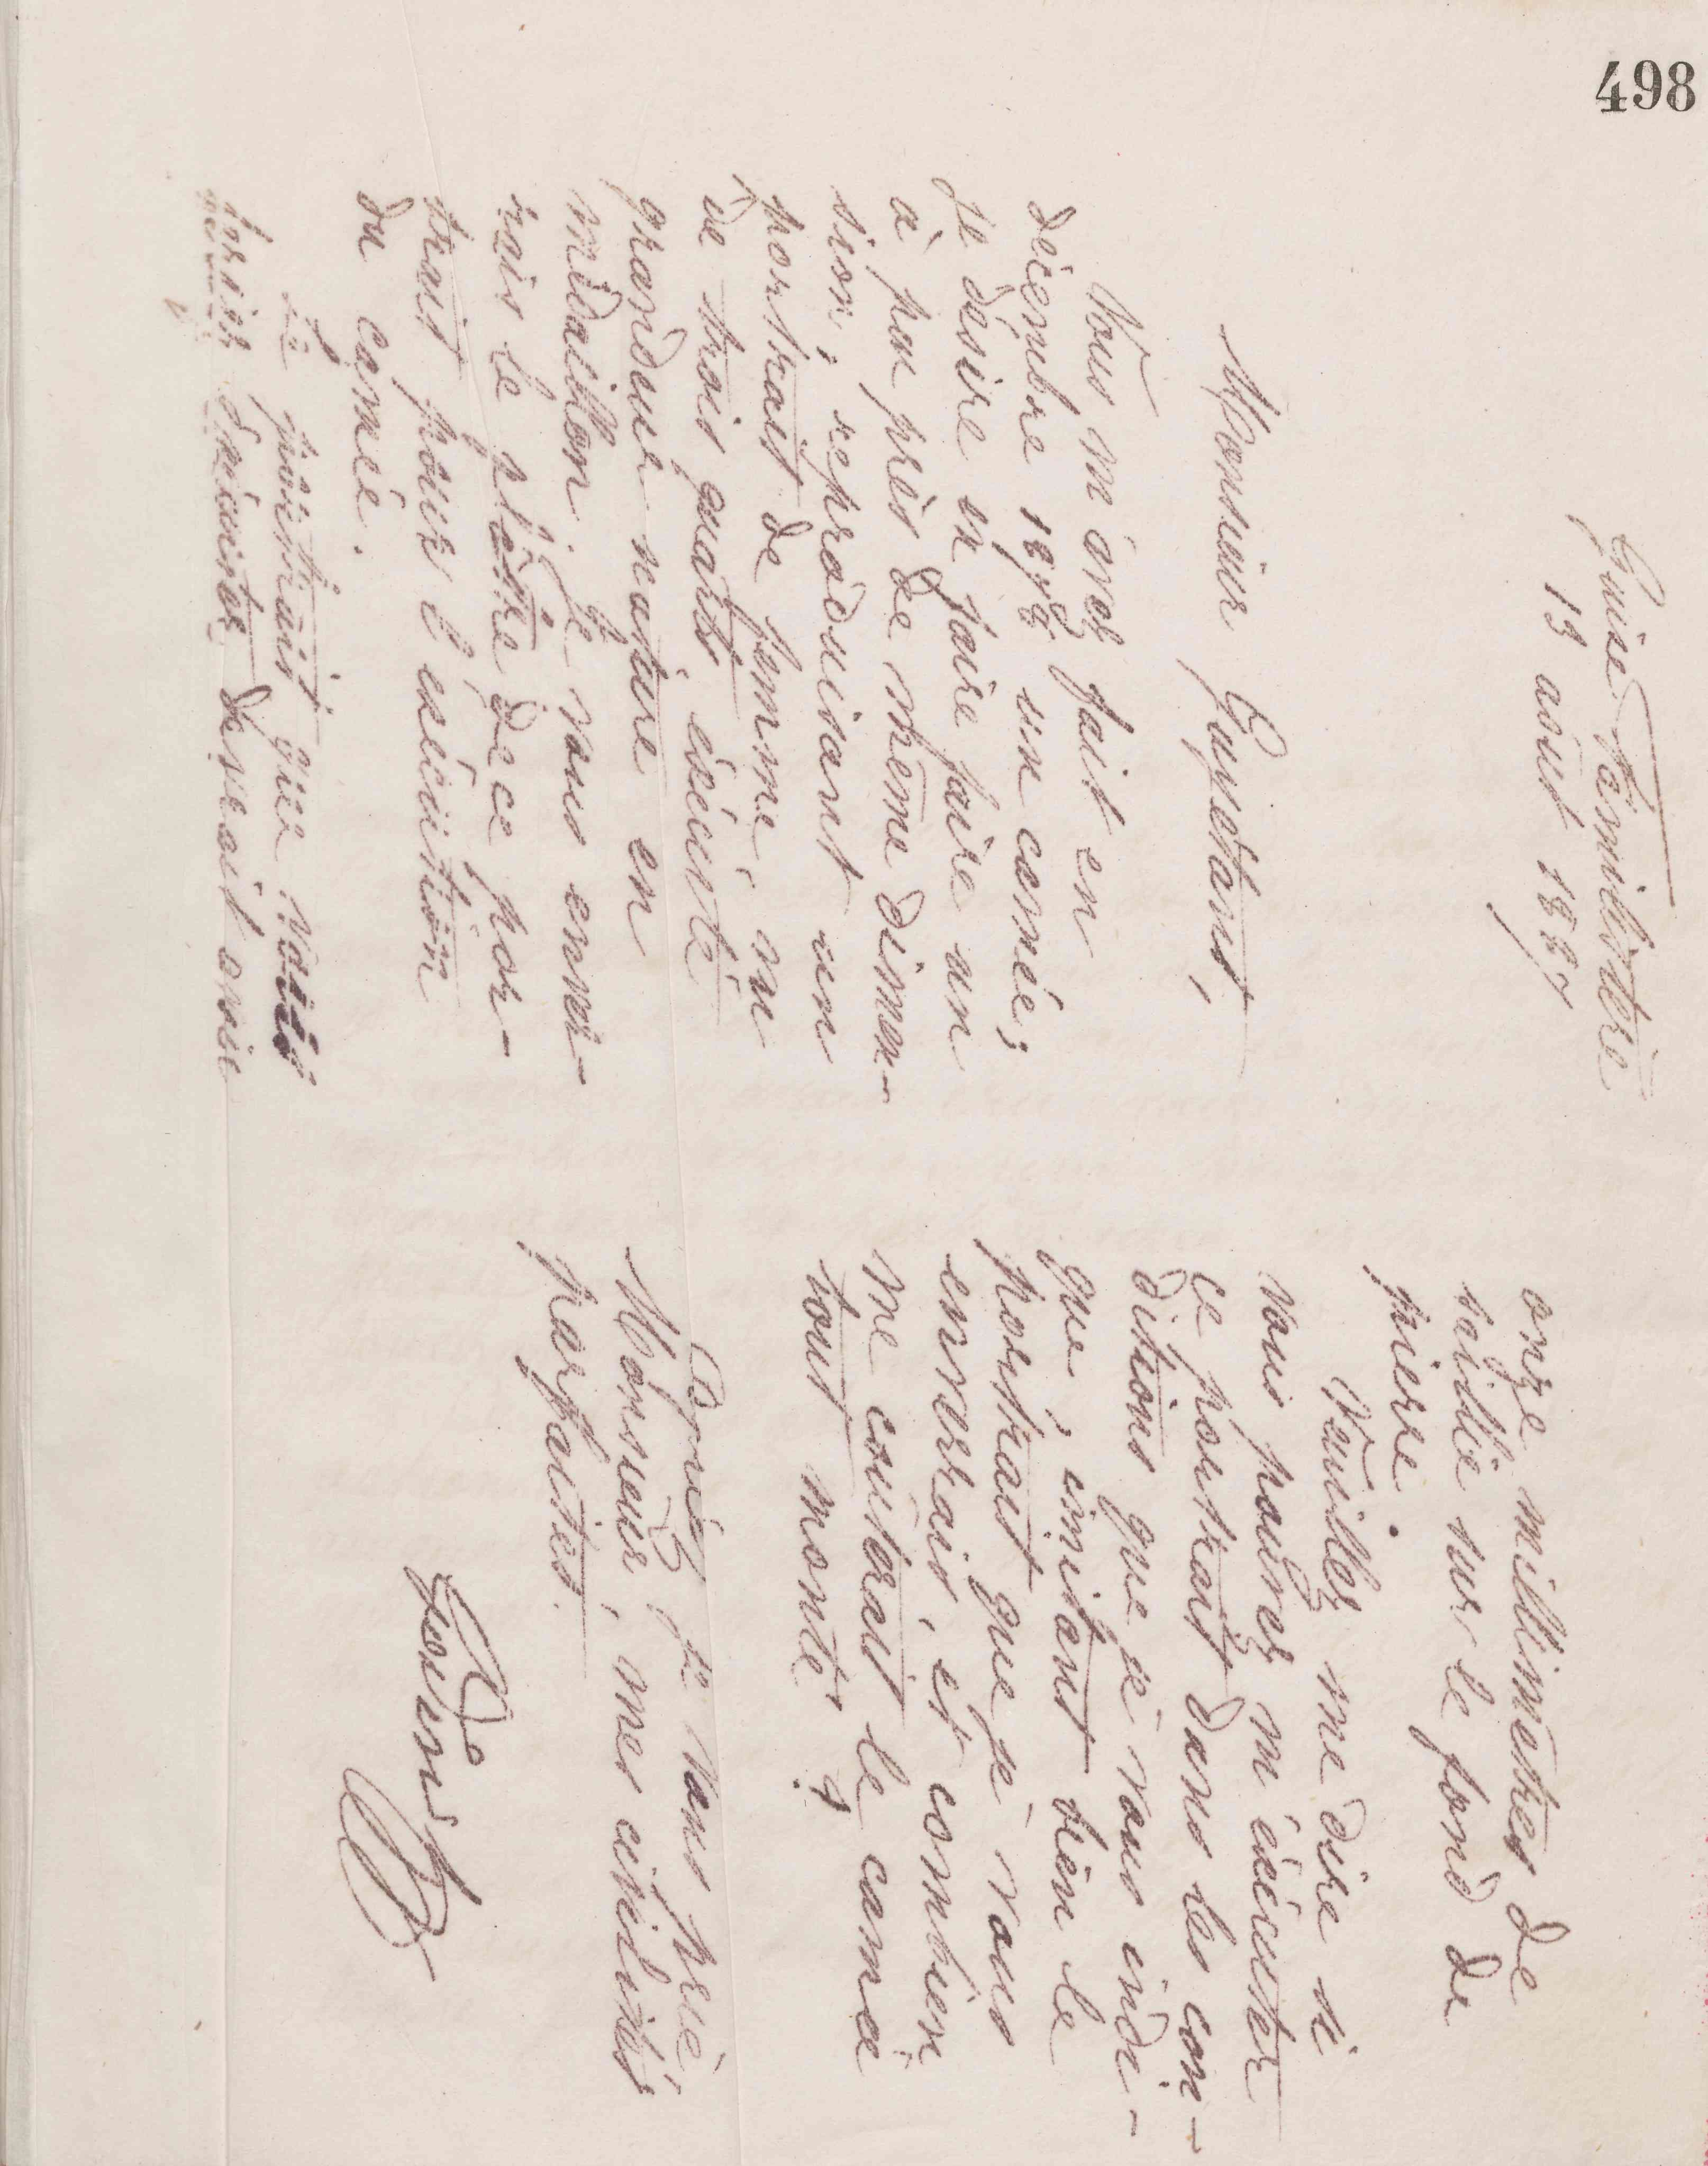 498
Guise Familistère
13 aout 1887
Monsieur Guyétant,
Vous m'avez fait en
décembre 1878 un camée;
je désire en faire faire un
à peu près de même dimen-
sion, reproduisant un
portrait de femme, vu
de trois quarts, exécuté
grandeur nature en
médaillon. Je vous enver-
rais le plâtre de ce por-
trait pour l'exécution
du camée.
Le portrait que vous
auriez à exécuter devrait avoir
onze millimètres de
saillie sur le fond de
pierre.
Veuillez me dire si
vous pouvez m'exécuter
ce portrait dans les con-
ditions que je vous indi-
que, imitant bien le
portrait que je vous
enverrais, et combien
me coûterait le camée
tout monté?
Agréez, je vous prie,
Monsieur, mes civilités
parfaites.
Godin